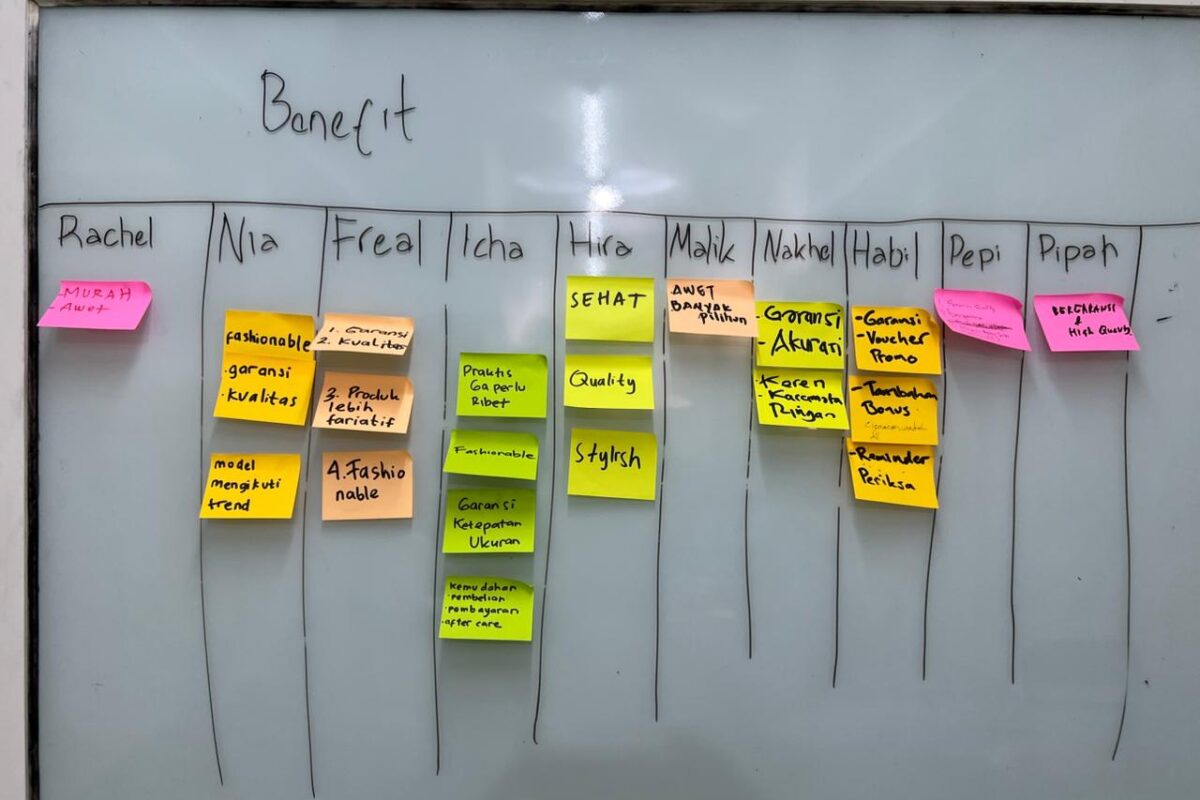 Benefit
Rachel
Nia
Freal
Icha
Hira
Malik
Nakhel
Habil
Pepi
Pipah
- MURAH
- Awet
fashionable
· garansi
· kualitas
model
mengikuti
trend
1. Garansi
2. Kualitas
3. Produk
lebih
fariatif
4. Fashio
nable
Praktis
Gaperlu
Ribet
Fashionable
Garansi
Ketepatan
Ukuran
Kemudahan
· pembelian
· pembayaran
· after care
SEHAT
Quality
Stylish
AWET
BANYAK
pilihan
- Garansi
- Akurasi
- Karen
- Kacamata
Ringan
- Garansi
- Voucher
Promo
- Tambahan
Bonus
- Reminder
Periksa
BERGARANSI
&
High Quality